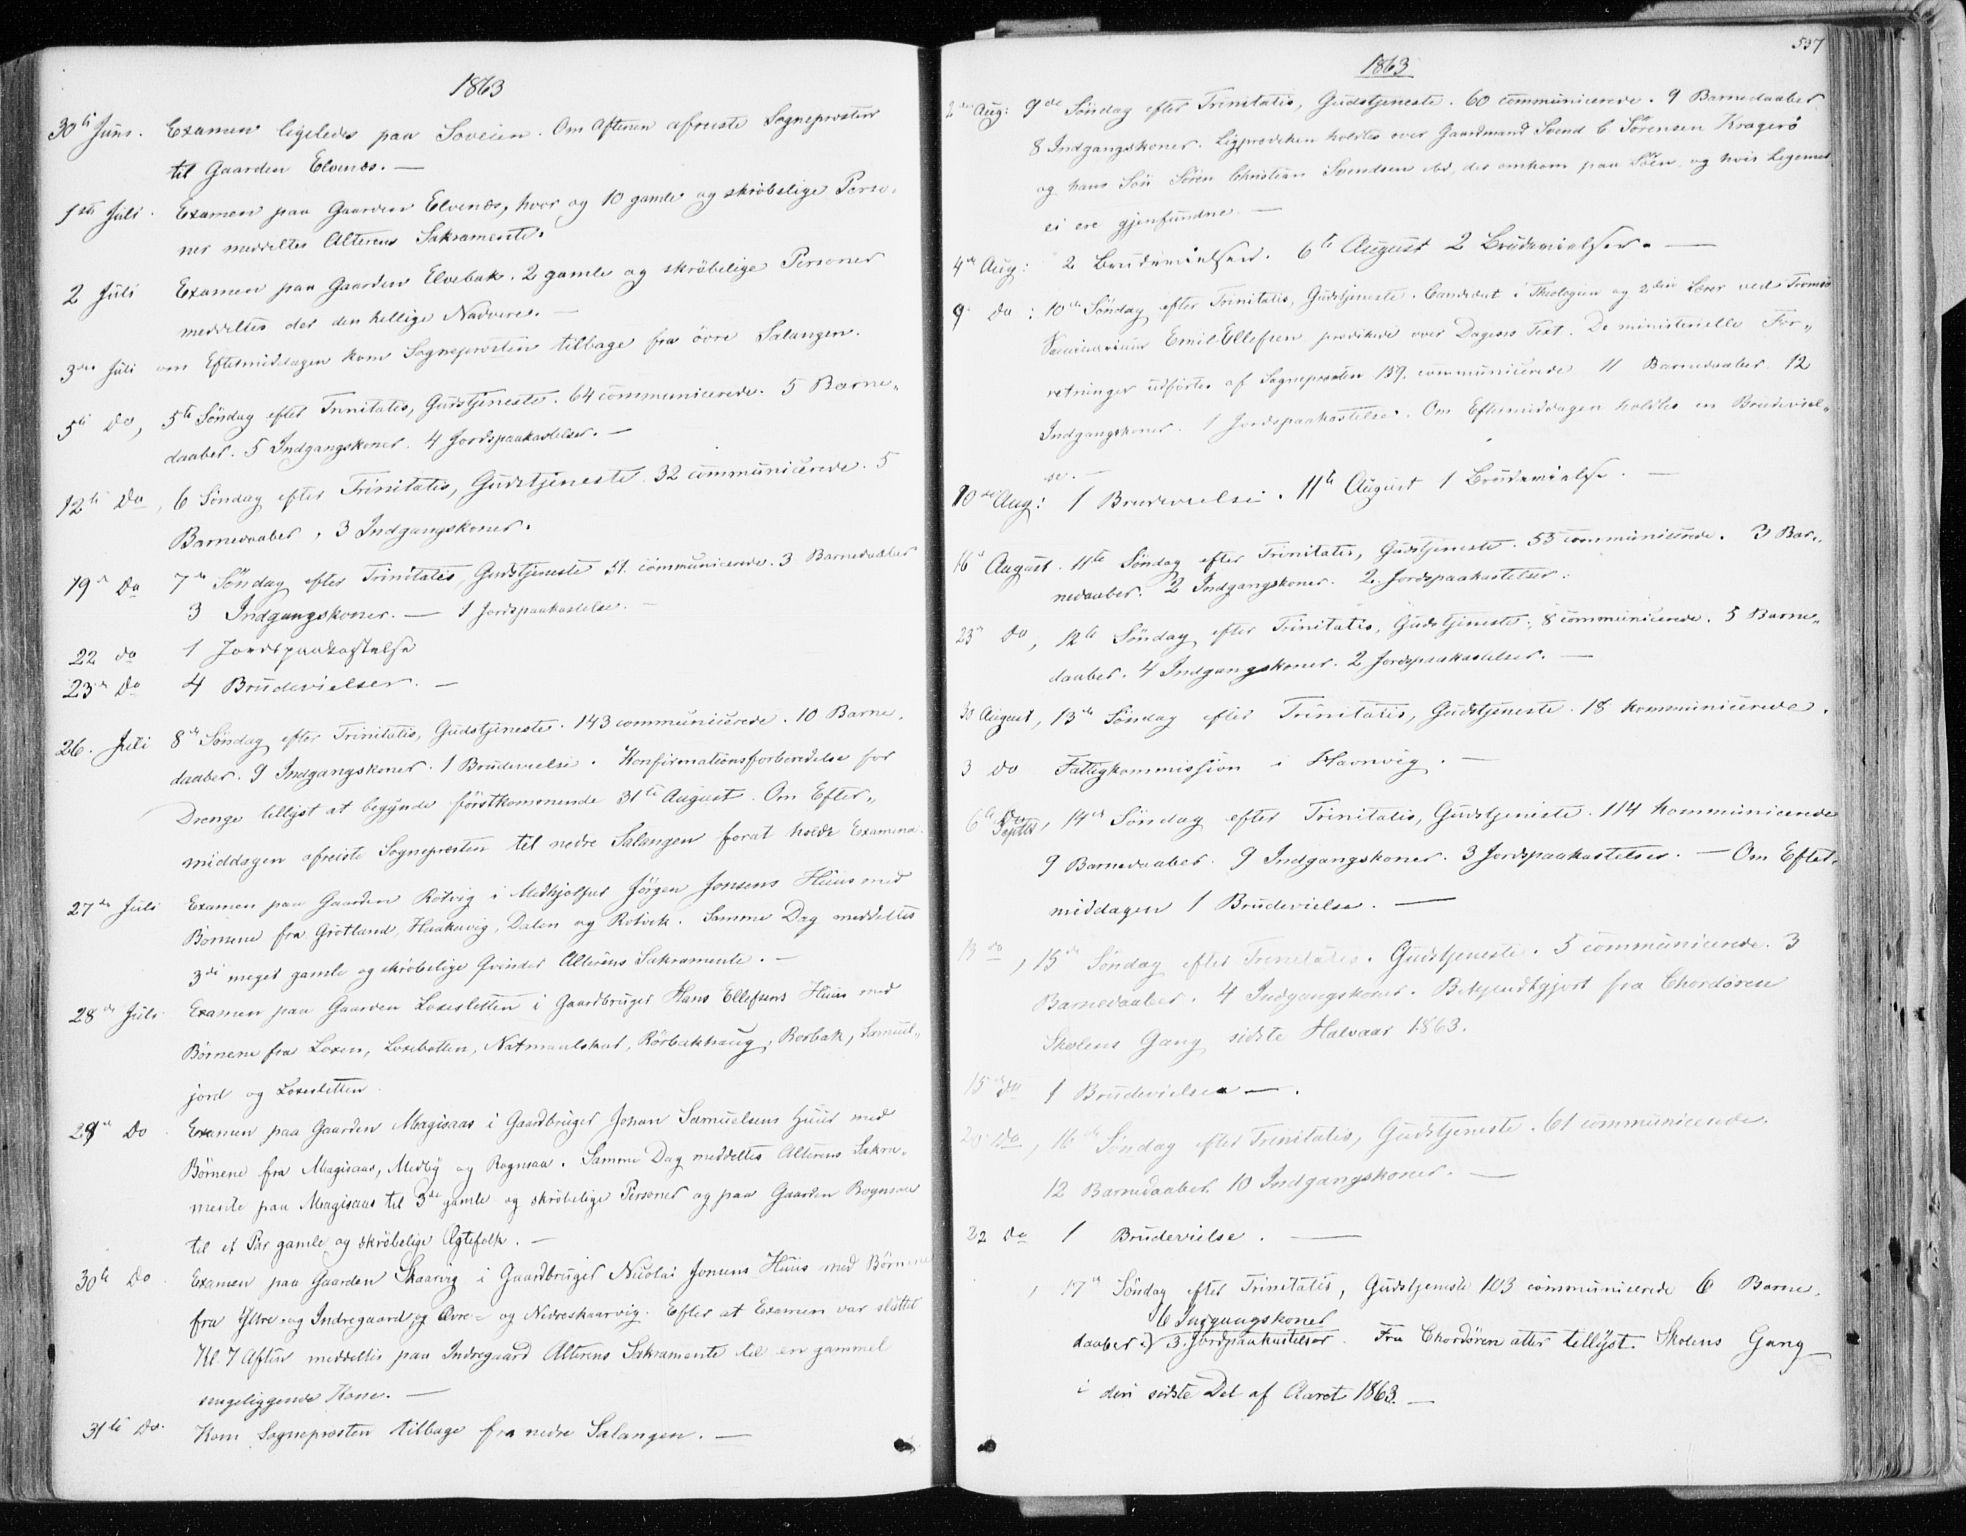 1863
30te Juni. Examen ligeledes paa Soveien. Om Aftenen afreiste Sogneprosten
til Gaarden Elvenæs. —
1ste Juli. Examen paa Gaarden Elvenæs, hvor og 10 gamle og skröbelige Perso-
ner meddeltes Alterens Sakramente.
2 Juli Examen paa Gaarden Elvebak. 2 gamle og skröbelige Personer
meddeltes der den hellige Nadvere. —
3die Juli om Eftermiddagen kom Sognepresten tilbage fra övre Salangen.
5te Do, 5te Söndag efter Trinitatis, Gudstjeneste. 64 communicerede. 5 Barne„
daaber. 5 Indgangskoner. 4 Jordspaakastelser. —
12te Do, 6 Söndag efter Trinitatis, Gudstjeneste. 32 communicerede. 5
Barnedaaber, 3 Indgangskoner.
19de Do 7de Söndag efter Trinitatis, Gudstjeneste 51. communicerede. 3 Barnedaaber
3 Indgangskoner. — 1 Jordspaakastelse. —
22 do 1 Jordspaakastelse
23de Do 4 Brudevielser. —
26. Juli 8de Söndag efter Trinitatis, Gudstjeneste. 143 communicerede. 10 Barne„
daaber. 9 Indgangskoner. 1 Brudevielse. Konfirmationsforberedelse for
Drenge tillyst at begynde förstkommende 31te August. Om Efter„
middagen afreiste Sognepresten til nedre Salangen forat holde Examina.
27de Juli Examen paa Gaarden Rötvig i Jörgen Jonsens Huus med
Börnene fra Grötland, Haakavig, Dalen og Rotvik. Samme Dag meddeltes
3de meget gamle og skröbelige Qvinder Alterens Sakramente. —
28de Juli Examen paa Gaarden Loxesletten i Gaardbruger Hans Ellefsens Huus med
Börnene fra Loxen, Loxebotten, Rörbakhaug, Rorbak, Samuel„
jord og Loxesletten.
29de Do Examen paa Gaarden Magisaas i Gaardbruger Johan Samuelsens Huus med
Börnene fra Magisaas, Medby og Rognsaa. Samme Dag meddeltes Alterens Sakra„
mente paa Magisaas til 3de gamle og skröbelige Personer og paa Gaarden Rognsaa
til et Par gamle og skröbelige Ægtefolk. —
30te Do Examen paa Gaarden Skaarvig i Gaardbruger Nicolai Jonsens Huus med Börnene
fra Yttre- og Indregaard, og Övre- og Nedreskaarvig. Efter at Examen var sluttet
Kl. 7 Aften meddeltes paa Indregaard Alterens Sakramente til en gammel
sengeliggende Kone. —
31te Do. Kom Sognepresten tilbage fra nedre Salangen. —
537
1863
2den Aug: 9de Söndag efter Trinitatis, Gudstjeneste. 60 communicerede. 9 Barnedaaber
8 Indgangskoner. Ligprædiken holdtes over Gaardmand Svend C Sörensen Kragerö
og hans Sön Sören Christian Svendsen ibd, der omkom paa Söen, og hvis Legemer
ei ere gjenfundne. —
4de Aug: 2 Brudevielser. 6te August 2 Brudevielser. —
9de Do: 10de Söndag efter Trinitatis, Gudstjeneste. Candidat i Theologien og 2den Lærer ved Tromsö
Seminarium Emil Ellefsen prædikede over Dagens Text. De ministerielle For„
retninger udförtes af Sognepresten 159. communicerede 11 Barnedaaber. 12
Indgangskoner. 1 Jordspaakastelse. Om Eftermiddagen holdtes en Brudeviel„
se. —
10de Aug: 1 Brudevielse. 11te August 1 Brudevielse. —
16de August. 11te Söndag efter Trinitatis, Gudstjeneste. 53 communicerede. 3 Bar„
nedaaber. 2 Indgangskoner. 2. Jordspaakastelser.
23de Do, 12te Söndag efter Trinitatis, Gudstjeneste, 8 communicerede. 5 Barne„
daaber. 4 Indgangskoner. 2 Jordspaakastelser. —
30 August, 13de Söndag efter Trinitatis, Gudstjeneste. 18 kommunicerede.
3 do Fattigkommission i Havnvig. —
6te Do Septbr, 14de Söndag efter Trinitatis, Gudstjeneste. 114 kommunicerede
9 Barnedaaber. 9 Indgangskoner. 3 Jordspaakastelser. — Om Efter„
middagen 1 Brudevielse. —
13 do, 15de Söndag efter Trinitatis. Gudstjeneste. 5 communicerede. 3
Barnedaaber. 4 Indgangskoner. Bekjendtgjort fra Chordören
Skolens Gang sidste Halvaar 1863.
15de Do 1 Brudevielse —.
20 Do, 16de Söndag efter Trinitatis, Gudstjeneste. 61 communicerede.
12 Barnedaaber. 10 Indgangskoner. —
22 Do 1 Brudevielse. —
, 17de Söndag efter Trinitatis, Gudstjeneste 103 communicerede 6 Barne„
6 Indgangskoner
daaber. 3. Jordpaakastelser. Fra Chordören atter tillyst Skolens Gang
i den sidste Del af Aaret 1863. —